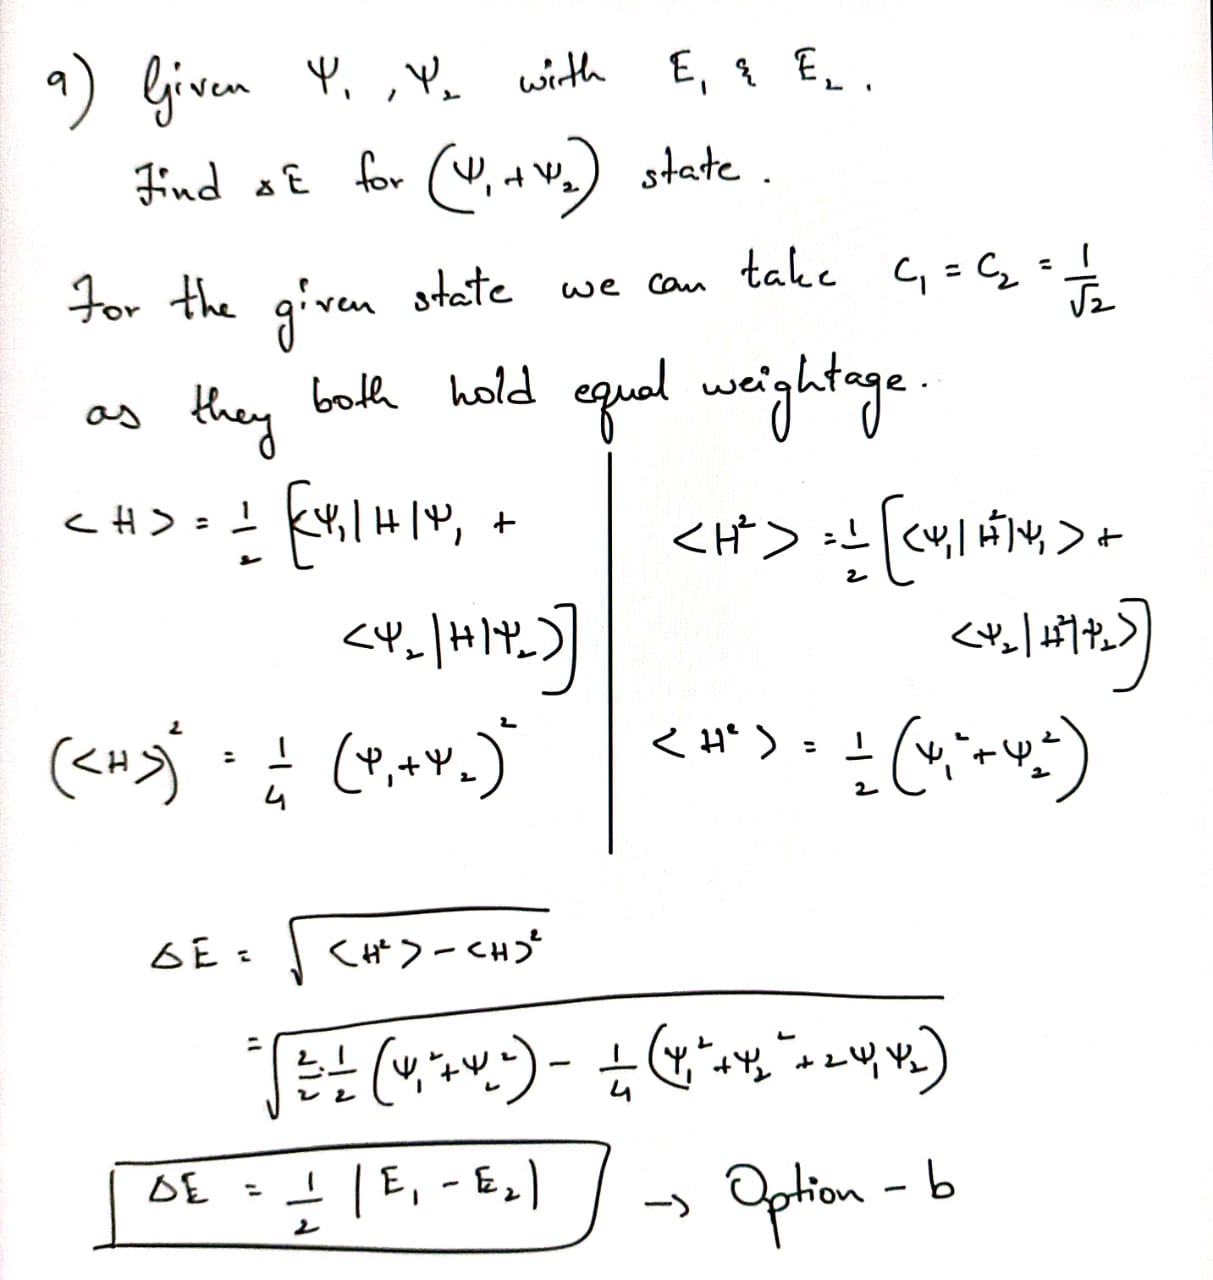 9) Given Ψ₁, Ψ₂ with E₁ & E₂.
Find ΔE for (Ψ₁+Ψ₂) state.
For the given state we can take C₁ = C₂ = 1/√2
as they both hold equal weightage.
<H> = 1/2 [<Ψ₁|H|Ψ₁ +
<Ψ₂|H|Ψ₂>]
(<H>)² = 1/4 (Ψ₁+Ψ₂)²
<H²> = 1/2 [<Ψ₁|H²|Ψ₁> +
<Ψ₂|H²|Ψ₂>]
<H²> = 1/2 (Ψ₁²+Ψ₂²)
ΔE = √(<H²> - <H>²)
= √(2/2 · 1/2 (Ψ₁²+Ψ₂²) - 1/4 (Ψ₁²+Ψ₂²+2Ψ₁Ψ₂))
ΔE = 1/2 |E₁ - E₂| → Option - b